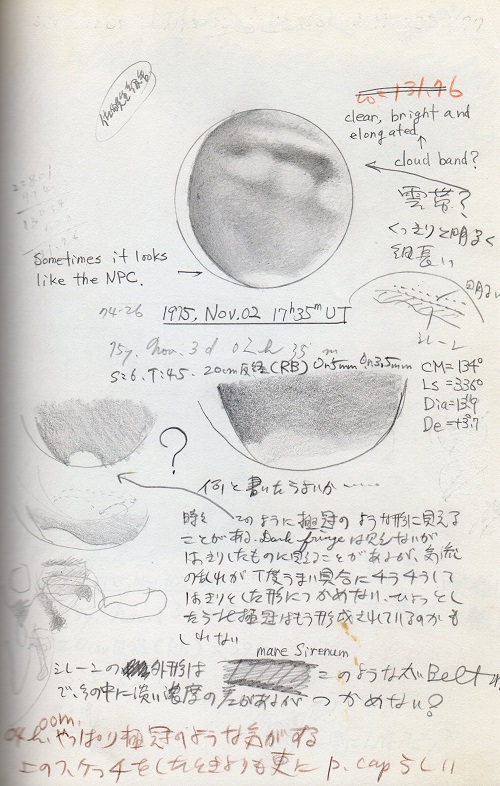 ω=131.76
clear, bright and
elongated
cloud band?
雲帯?
くっきりと明るく
細長い
Sometimes it looks
like the NPC.
明るい
シレーン
74-26
1975. Nov. 02 17h35m UT
75y. Nov. 3d 02h 35m
S=6. T:4.5. 20cm反経(RB) Or5mm Or3.5mm
CM=134°
Ls=336°
Dia=13"9
De=+3°7
?
何と書いたらよいか……
時々このように極冠のような形に見える
ことがある. Dark fringeは見えないが
はっきりしたものに見えることがあるが、気流
の乱れが丁度うまい具合にチラチラして
はっきりとした形につかめない、ひょっとし
たら北極冠はもう形成されているのかも
しれない
mare Sirenum
シレーンの外形は
このような太いBelt
で、その中に淡い濃度の差があるが つかめない?
04h00m、やっぱり極冠のような気がする
このスケッチをしたときよりも更に p. capらしい